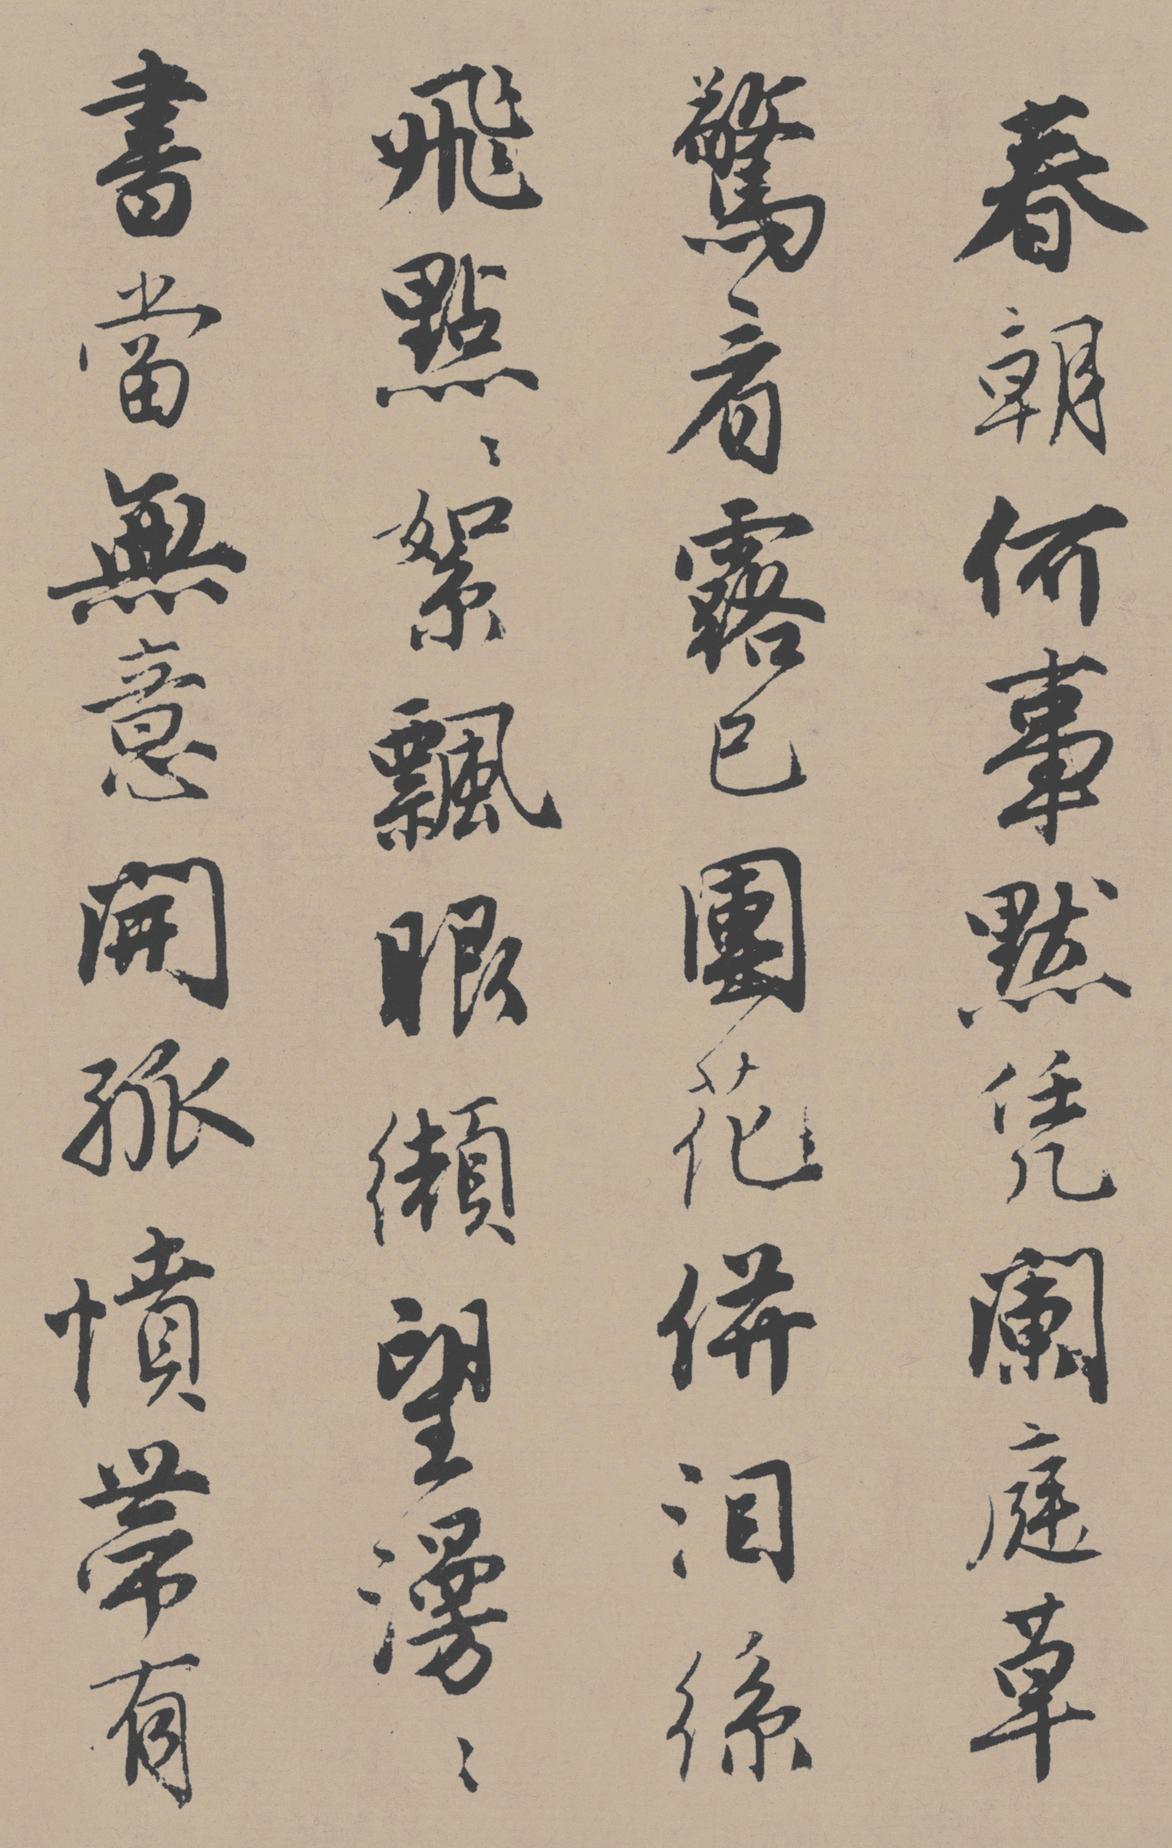 春朝何事默凭闌庭草
驚看露已團花併泪絲
飛點〻絮飄眼纈望漫〻
書當無意開孤憤帶有